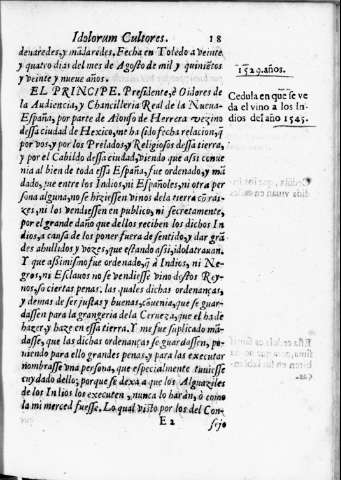 Idolorum Cultores. 18
denaredes, y mãlaredes, Fecha en Toledo a veinte,
y quatro dias del mes de Agosto de mil y quiniẽtos
y veinte y nueue años.
1529. años.
EL PRINCIPE. Presidente, è Oidores de
la Audiencia, y Chancilleria Real de la Nueua-
España, por parte de Alonso de Herrera vezino
dessa ciudad de Mexico, me ha sido fecha relacion, q̃
por vos, y por los Prelados, y Religiosos dessa tierra,
y por el Cabildo dessa ciudad, viendo que assi conue
nia al bien de toda essa España, fue ordenado, y mã
dado, que entre los Indios, ni Españoles, ni otra per
sona alguna, no se hiziessen vinos dela tierra cõ rai-
zes, ni los vendiessen en publico, ni secretamente,
por el grande daño que dellos reciben los dichos In
dios, a causa de los poner fuera de sentido, y dar grã
des ahullidos y vozes, que estando assi, idolatrauan.
Y que assimismo fue ordenado, q̃ à Indios, ni Ne-
gros, ni Esclauos no se vendiesse vino destos Rey-
nos, so ciertas penas. las quales dichas ordenanças,
y demas de ser justas y buenas, cõuenia, que se guar-
dassen para la grangeria de la Cerueza, que el ha de
hazer, y haze en essa tierra. Y me fue suplicado mã-
dasse, que las dichas ordenanças se guardassen, po-
niendo para ello grandes penas, y para las executar
nombrasse vna persona, que especialmente tuuiesse
cuydado dello; porque se dexa a que los Alguaziles
de los Indios los executen, nunca lo harán, ò como
la mi merced fuesse. Lo qual visto por los del Con-
E 2 sejo
Cedula en que se ve
da el vino a los In-
dios del año 1545.